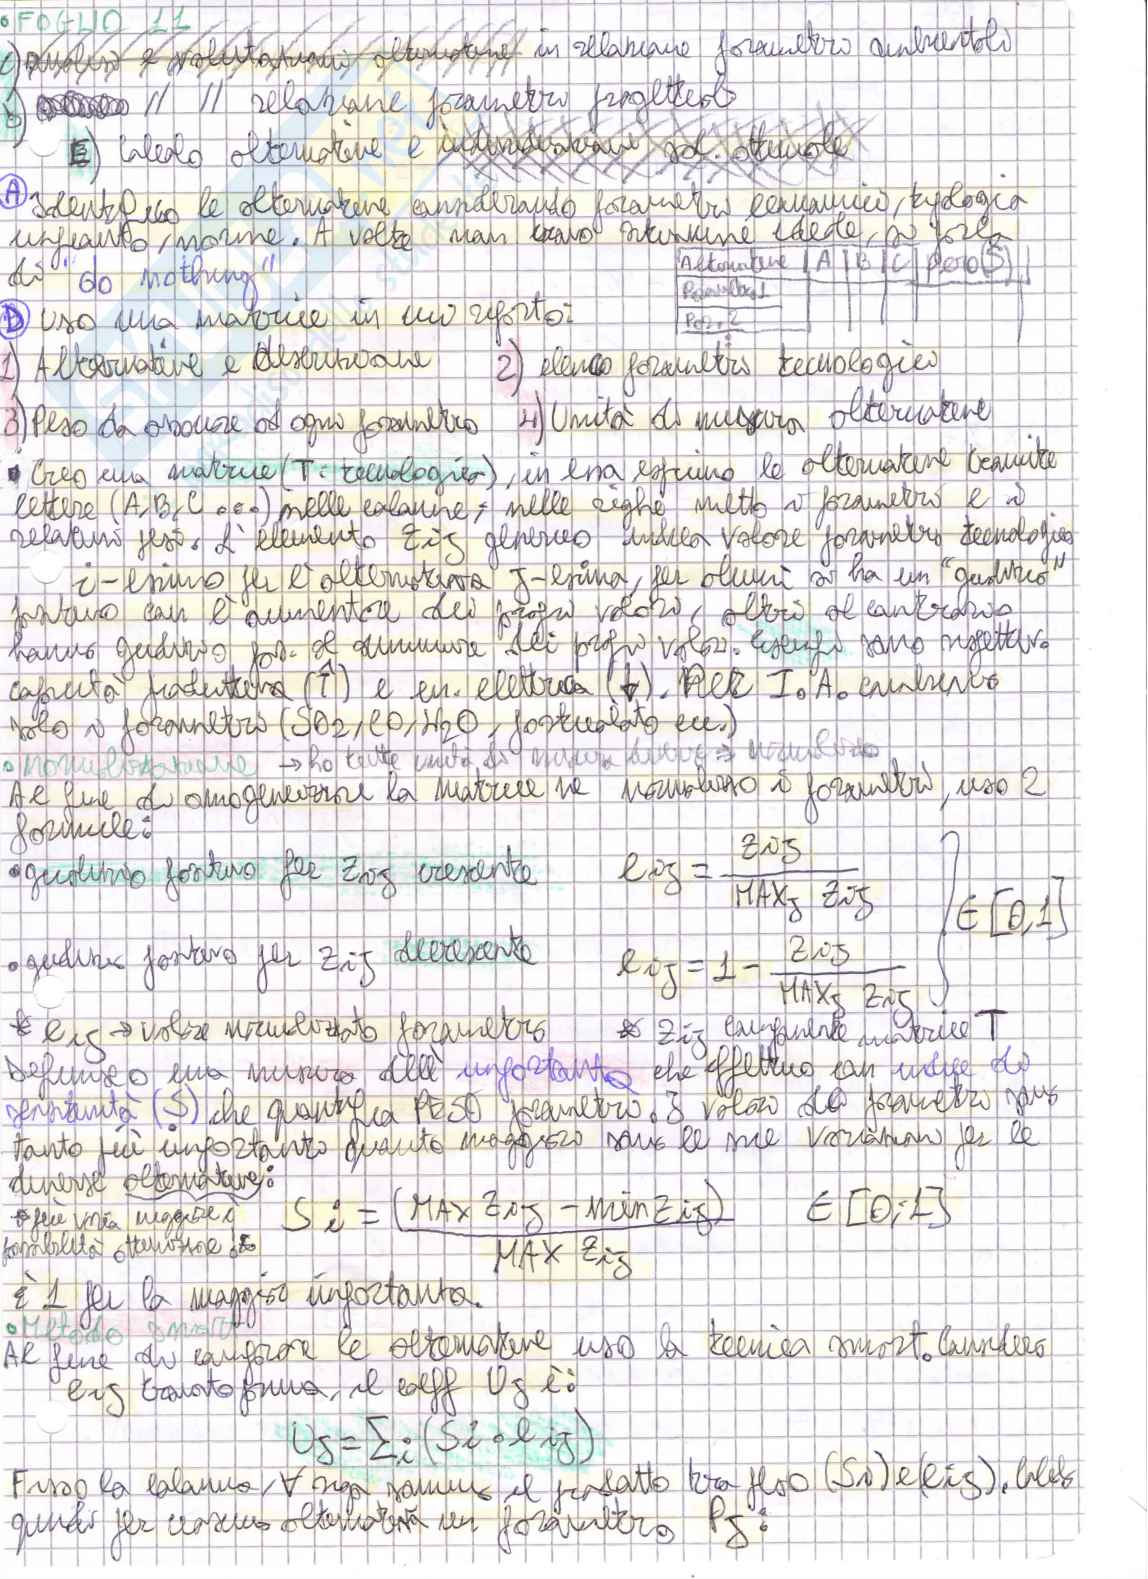 • FOGLIO 11
c) analisi e valutazioni alternative in relazione parametro ambientali
// // relazione parametro progettuali
E) Calcolo alternative e individuazione sol. ottimale
A Identifico le alternative considerando parametri economici, tipologia
impianto, norme. A volte non trovo idee, si parla
di "do nothing"
Alternative | A | B | C | Peso (S)
Param. 1
Par. 2
B Uso una matrice in cui riporto:
1) Alternative e descrizione 2) elenco parametri tecnologici
3) Peso da associare ad ogni parametro 4) Unità di misura alternative
• Creo una matrice (T: tecnologica), in essa esprimo le alternative tramite
lettere (A, B, C ...) nelle colonne; nelle righe metto i parametri e i
relativi pesi. L'elemento Zij generico indica valore parametro tecnologico
i-esimo per l'alternativa j-esima, per alcuni si ha un "giudizio"
positivo con l'aumentare dei propri valori, altri al contrario
hanno giudizio pos. al diminuire dei propri valori. Esempi sono rispettiv.
capacità produttiva (↑) e en. elettrica (↓). PER I.A. cambiano
solo i parametri (SO2, CO, H2O, particolato ecc.)
• Normalizzazione → ho tante unità di misura diverse → normalizzo
Al fine di omogeneizzare la matrice ne normalizzo i parametri, uso 2
formule:
• giudizio positivo per Zij crescente eij = Zij / MAXj Zij
∈ [0,1]
• giudizio positivo per Zij decrescente eij = 1 - Zij / MAXj Zij
* eij → valore normalizzato parametro * Zij componente matrice T
Definisco una misura dell'importanza che effettuo con indice di
sensitività (S) che quantifica PESO parametro. I valori del parametro sono
tanto più importanti quanto maggiori sono le sue variazioni per le
diverse alternative:
più varia maggiore è
possibilità
Si = (MAX Zij - min Zij) / MAX Zij ∈ [0;1]
È 1 per la maggior importanza.
• Metodo smart
Al fine di comparare le alternative uso la tecnica smart. Considero
eij trovato prima, il coeff Uj è:
Uj = Σi (Si · eij)
Fisso la colonna, ∀ riga sommo il prodotto tra peso (Si) e (eij). Calcolo
quindi per ciascuna alternativa un parametro Pj: